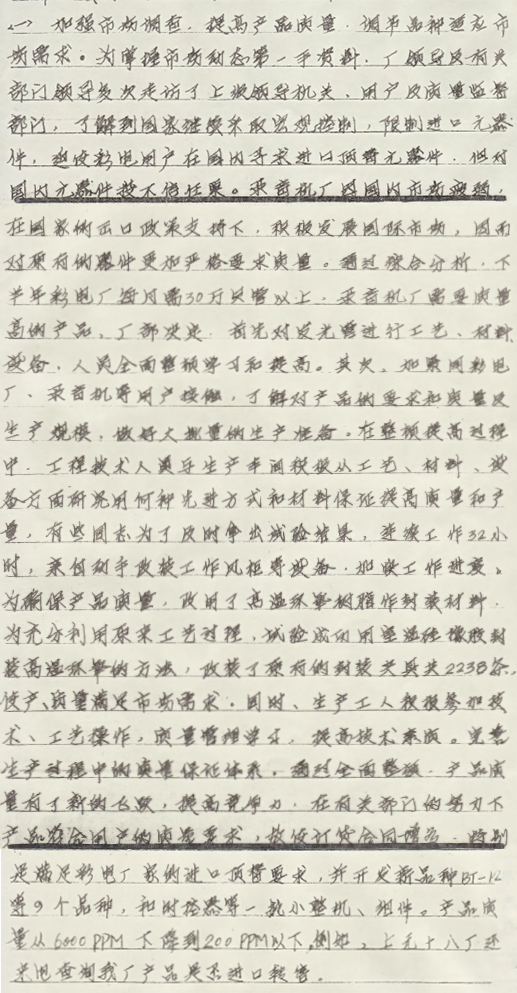 (一) 加强市场调查,提高产品质量,调节品种适应市
场需求。为掌握市场动态第一手资料,厂领导及有关
部门领导多次走访了上级领导机关、用户及质量监督
部门,了解到国家继续采取宏观控制,限制进口元器
件,迫使彩电用户在国内寻求进口顶替元器件,但对
国内元器件技不信任果。录音机厂因国内市场疲软,
在国家的出口政策支持下,积极发展国际市场,因而
对原有的器件更加严格要求质量。通过综合分析,下
半年彩电厂每月需30万只管以上,录音机厂需要质量
高的产品。厂部决定,首先对发光管进行工艺、材料、
设备、人员全面整顿学习和提高。其次,加紧同彩电
厂、录音机等用户接触,了解对产品的要求和质量及
生产规模,做好大批量的生产准备。在整顿提高过程
中,工程技术人员与生产车间积极从工艺、材料、设
备方面研究用何种先进方式和材料保证提高质量和产
量,有些同志为了及时拿出试验结果,连续工作32小
时,亲自动手改装工作风柜等设备,加快工作进度。
为确保产品质量,改用了高温环氧树脂作封装材料,
为充分利用原来工艺过程,试验成功用室温硅橡胶封
装高温环氧的方法,改装了原有的封装夹具共2238条,
使产、质量满足市场需求。同时、生产工人积极参加技
术、工艺操作,质量管理学习,提高技术素质。完善
生产过程中的质量保证体系。通过全面整顿,产品质
量有了新的飞跃,提高竞争力,在有关部门的努力下
产品符合用户的质量要求,故使订货合同增多,特别
是满足彩电厂家的进口顶替要求,并开发新品种BT-12
等9个品种,和时控器等一批小整机、组件。产品质
量从6000PPM下降到200PPM以下,例如,上无十八厂还
来电查询我厂产品是否进口装管。